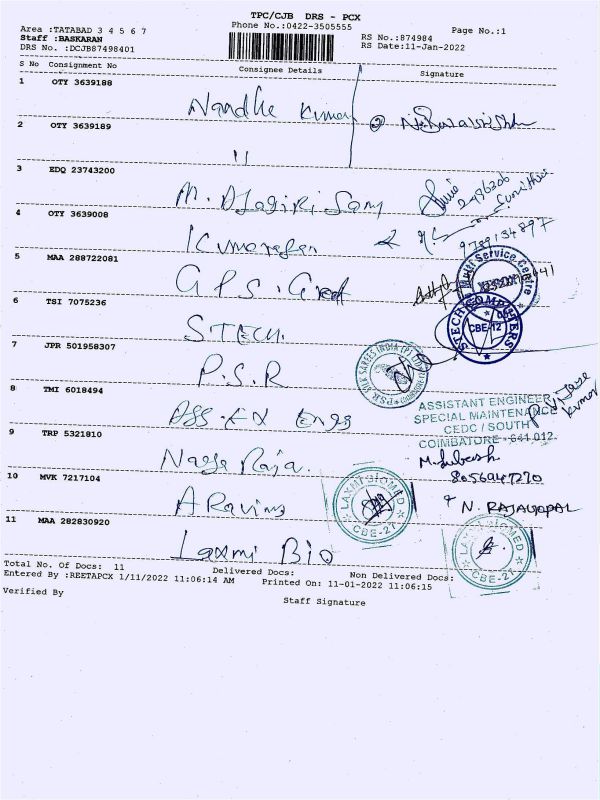 TPC/CJB DRS - PCX
Area :TATABAD 3 4 5 6 7
Phone No.:0422-3505555
Page No.:1
Staff :BASKARAN
RS No.:874984
DRS No. :DCJB87498401
RS Date:11-Jan-2022
S No Consignment No Consignee Details Signature
1 OTY 3639188
Nandha Kumar
2 OTY 3639189
"
3 EDQ 23743200
4 OTY 3639008
9789134897
5 MAA 288722081
Multi Service Centre
6 TSI 7075236
S.TECH.
STECH COMPUTERS
CBE-12
7 JPR 501958307
P.S.R
PSR SILK SAREES INDIA (P) LTD
8 TMI 6018494
ASSISTANT ENGINEER
SPECIAL MAINTENANCE
CEDC / SOUTH
COIMBATORE - 641 012.
9 TRP 5321810
Naga Raja.
8056947270
10 MVK 7217104
Aravind
LAXMI BIOMED
CBE-27
N. RAJAGOPAL
11 MAA 282830920
Laxmi Bio
LAXMI BIOMED
CBE-27
Total No. Of Docs: 11 Delivered Docs: Non Delivered Docs:
Entered By :REETAPCX 1/11/2022 11:06:14 AM Printed On: 11-01-2022 11:06:15
Verified By
Staff Signature